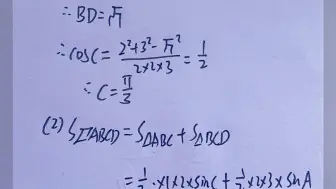 ∴BD=√7
∴cosC=(2²+3²-√7²)/(2×2×3)=1/2
∴C=π/3
(2) S四边形ABCD=S△ABC+S△BCD
=1/2·×1×2×sinC+1/2×2×3×sinA